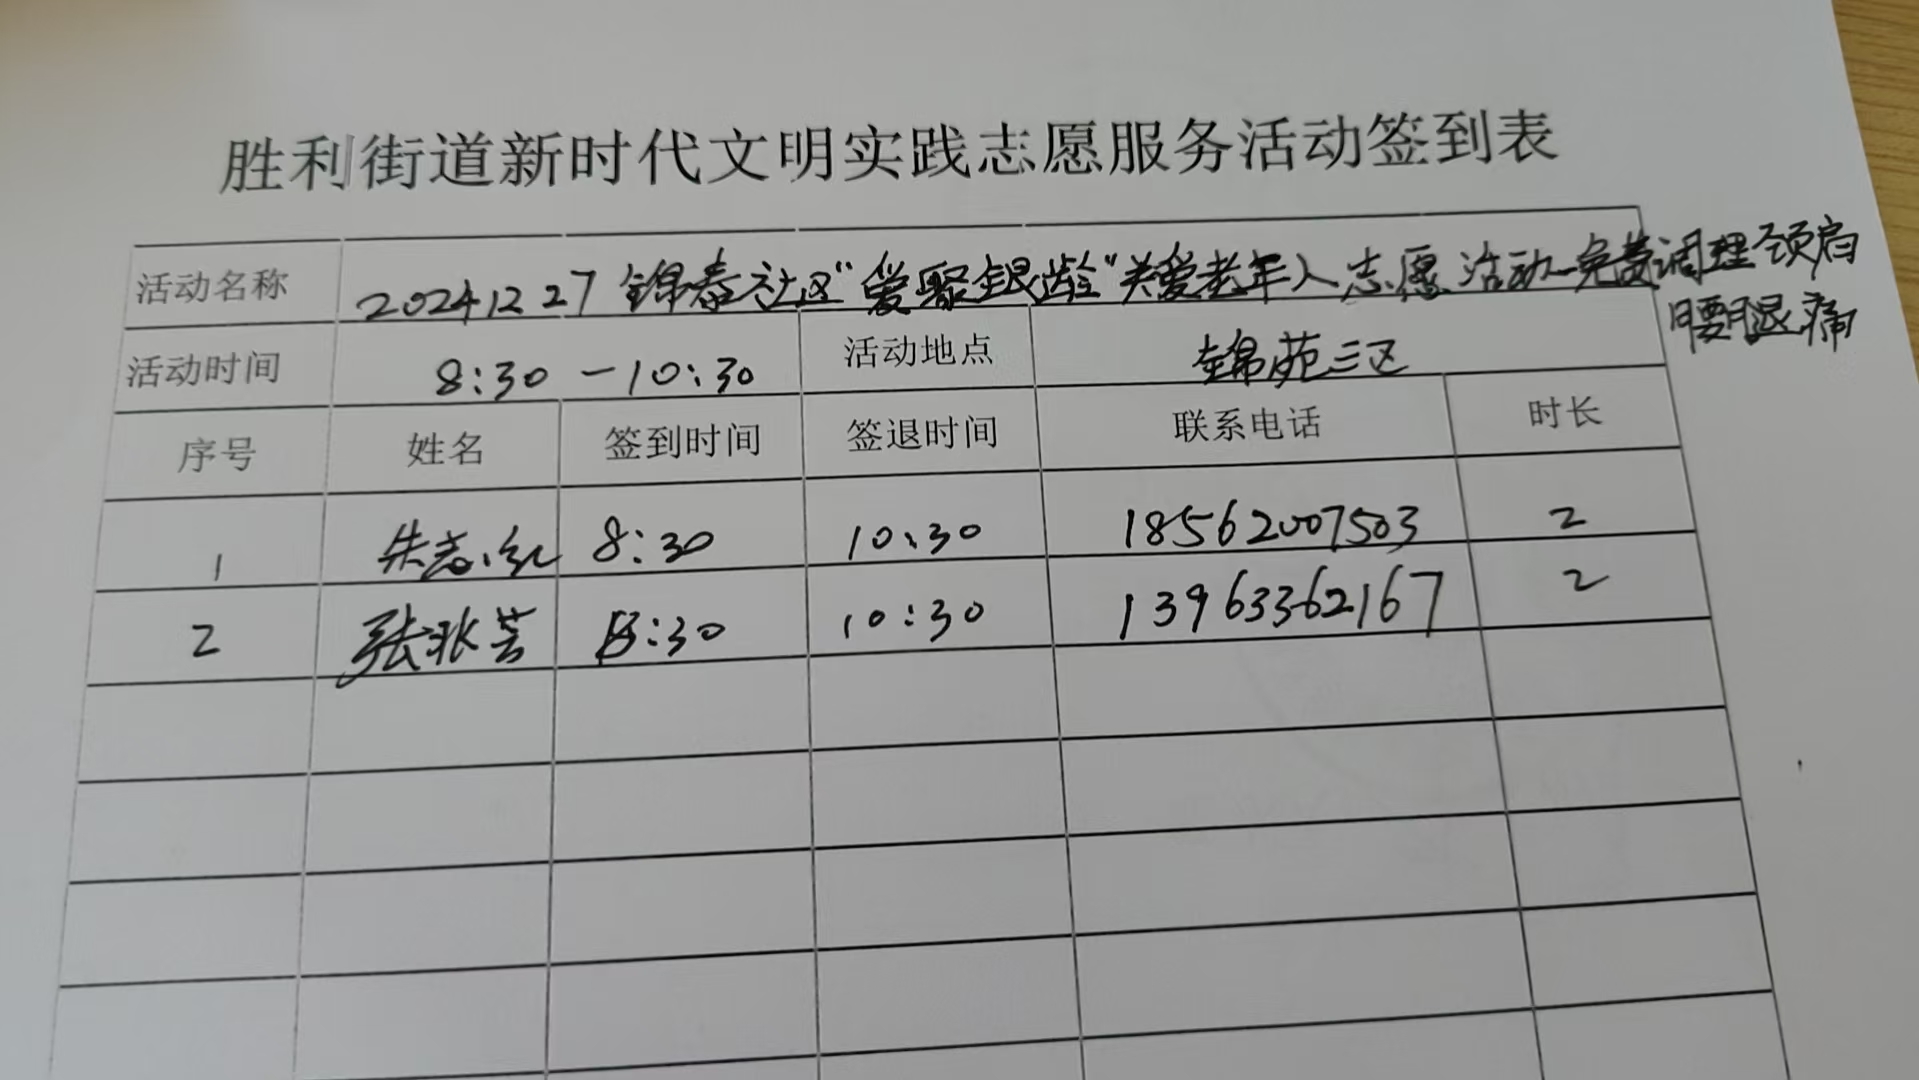 胜利街道新时代文明实践志愿服务活动签到表
活动名称 20241227锦泰社区“爱聚银龄”关爱老年人志愿活动-免费调理颈肩
腰腿痛
活动时间 8:30-10:30 活动地点 锦苑三区
序号 姓名 签到时间 签退时间 联系电话 时长
1 朱志红 8:30 10:30 18562007503 2
2 张 芸 8:30 10:30 13963362167 2